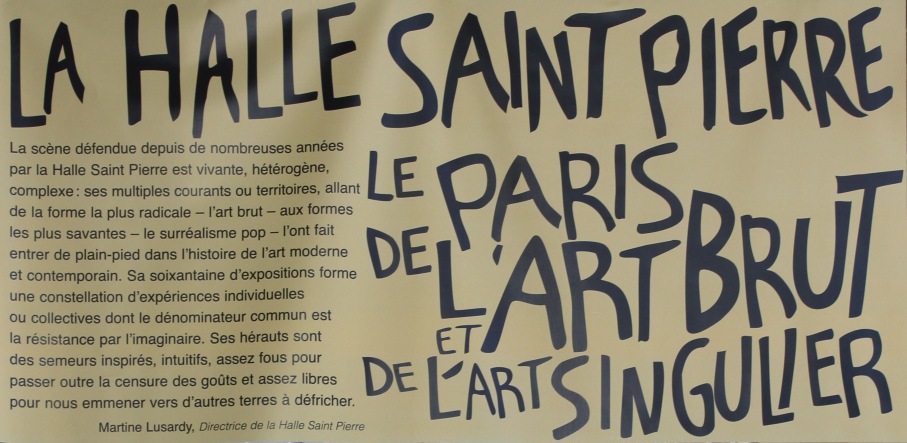 LA HALLE SAINT PIERRE
La scène défendue depuis de nombreuses années
par la Halle Saint Pierre est vivante, hétérogène,
complexe : ses multiples courants ou territoires, allant
de la forme la plus radicale – l'art brut – aux formes
les plus savantes – le surréalisme pop – l'ont fait
entrer de plain-pied dans l'histoire de l'art moderne
et contemporain. Sa soixantaine d'expositions forme
une constellation d'expériences individuelles
ou collectives dont le dénominateur commun est
la résistance par l'imaginaire. Ses hérauts sont
des semeurs inspirés, intuitifs, assez fous pour
passer outre la censure des goûts et assez libres
pour nous emmener vers d'autres terres à défricher.
Martine Lusardy, Directrice de la Halle Saint Pierre
LE PARIS
DE L'ART BRUT
ET
DE L'ART SINGULIER